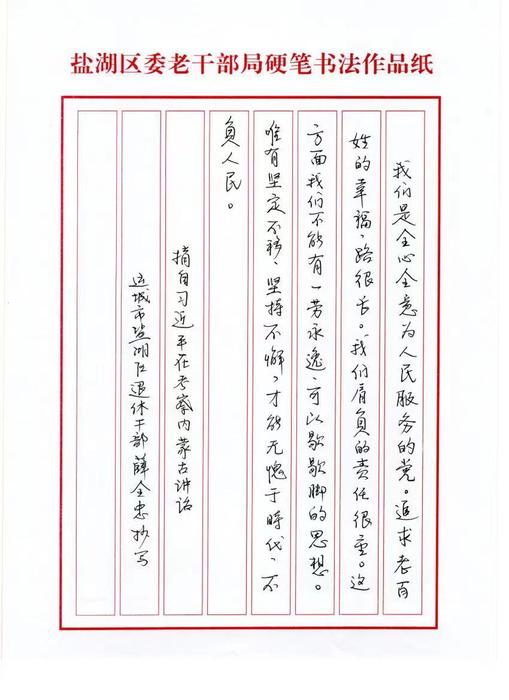 盐湖区委老干部局硬笔书法作品纸
我们是全心全意为人民服务的党。追求老百
姓的幸福、路很长。我们肩负的责任很重。这
方面我们不能有一劳永逸、可以歇歇脚的思想。
唯有坚定不移、坚持不懈、才能无愧于時代、不
负人民。
摘自习近平在考察内蒙古讲话
运城市盐湖区退休干部薛全忠抄写